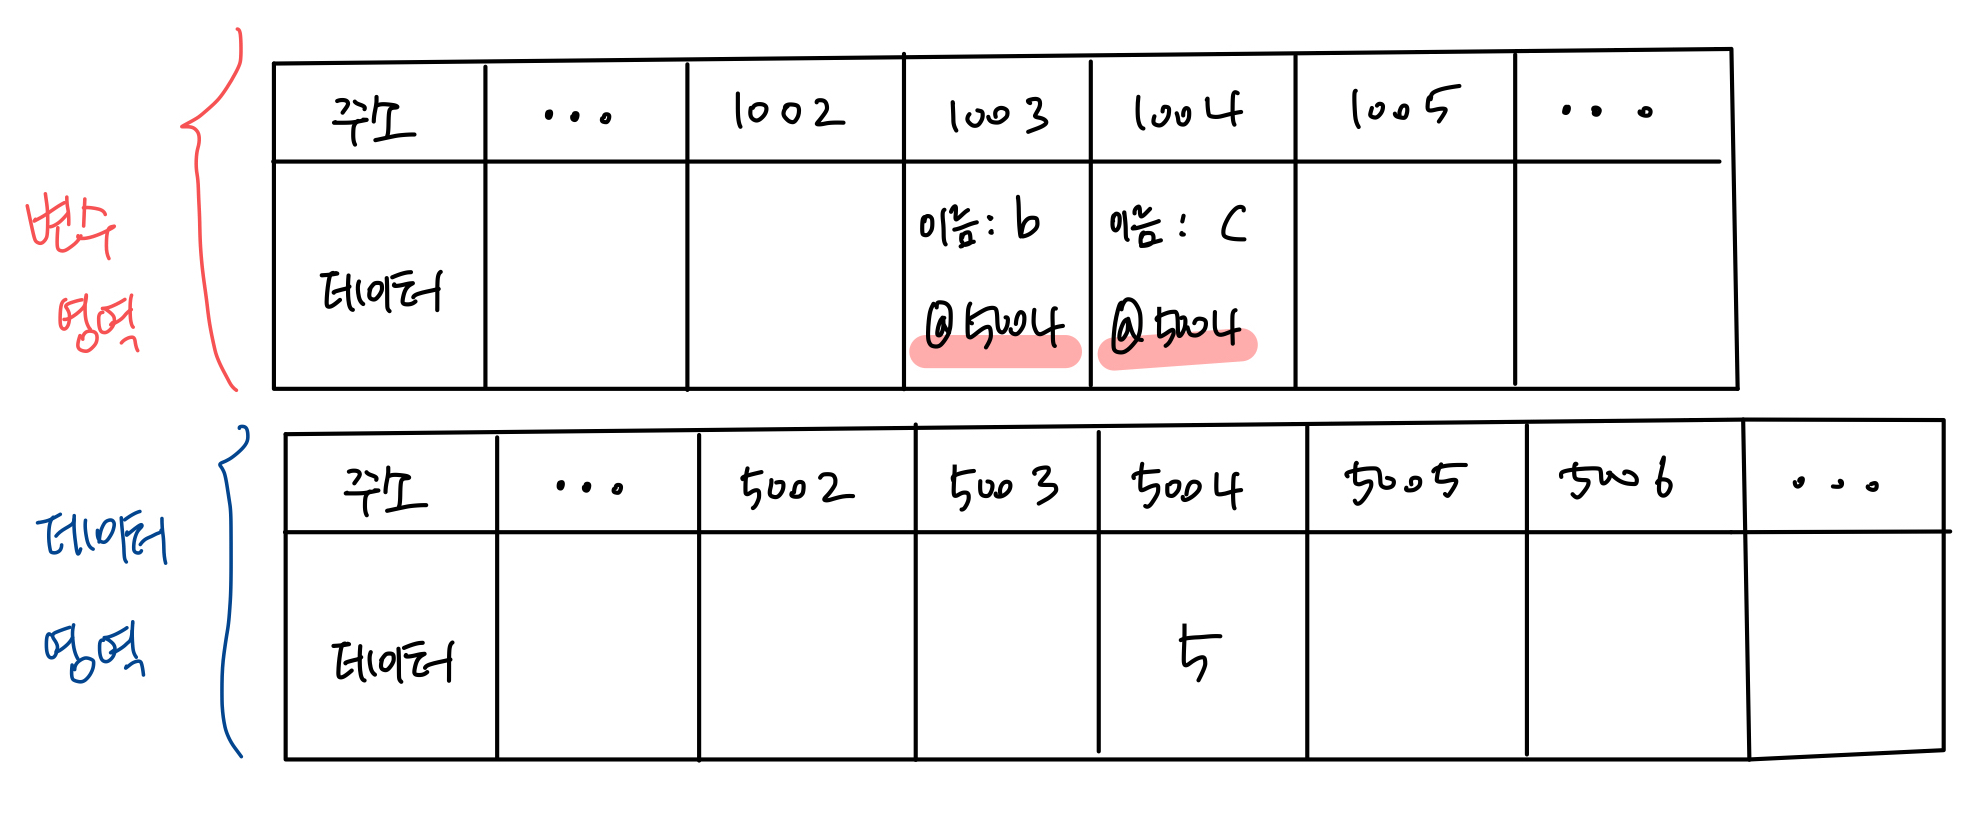 변수
영역
주소 ... 1002 1003 1004 1005 ...
데이터
이름: b 이름: c
@5004 @5004
데이터
영역
주소 ... 5002 5003 5004 5005 5006 ...
데이터 5